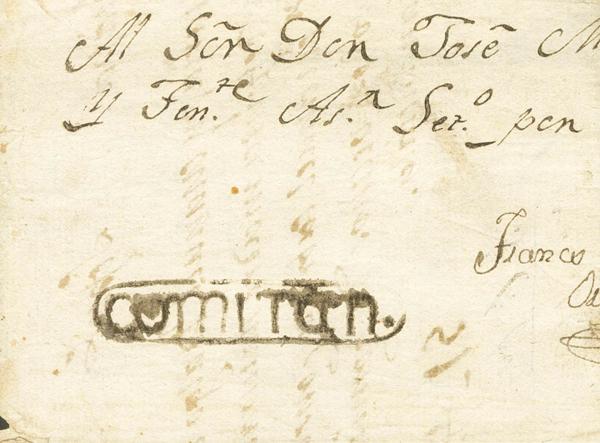 Al Señr Don José M
y Fon.te As.n Set.o pon
Franco
comitan.